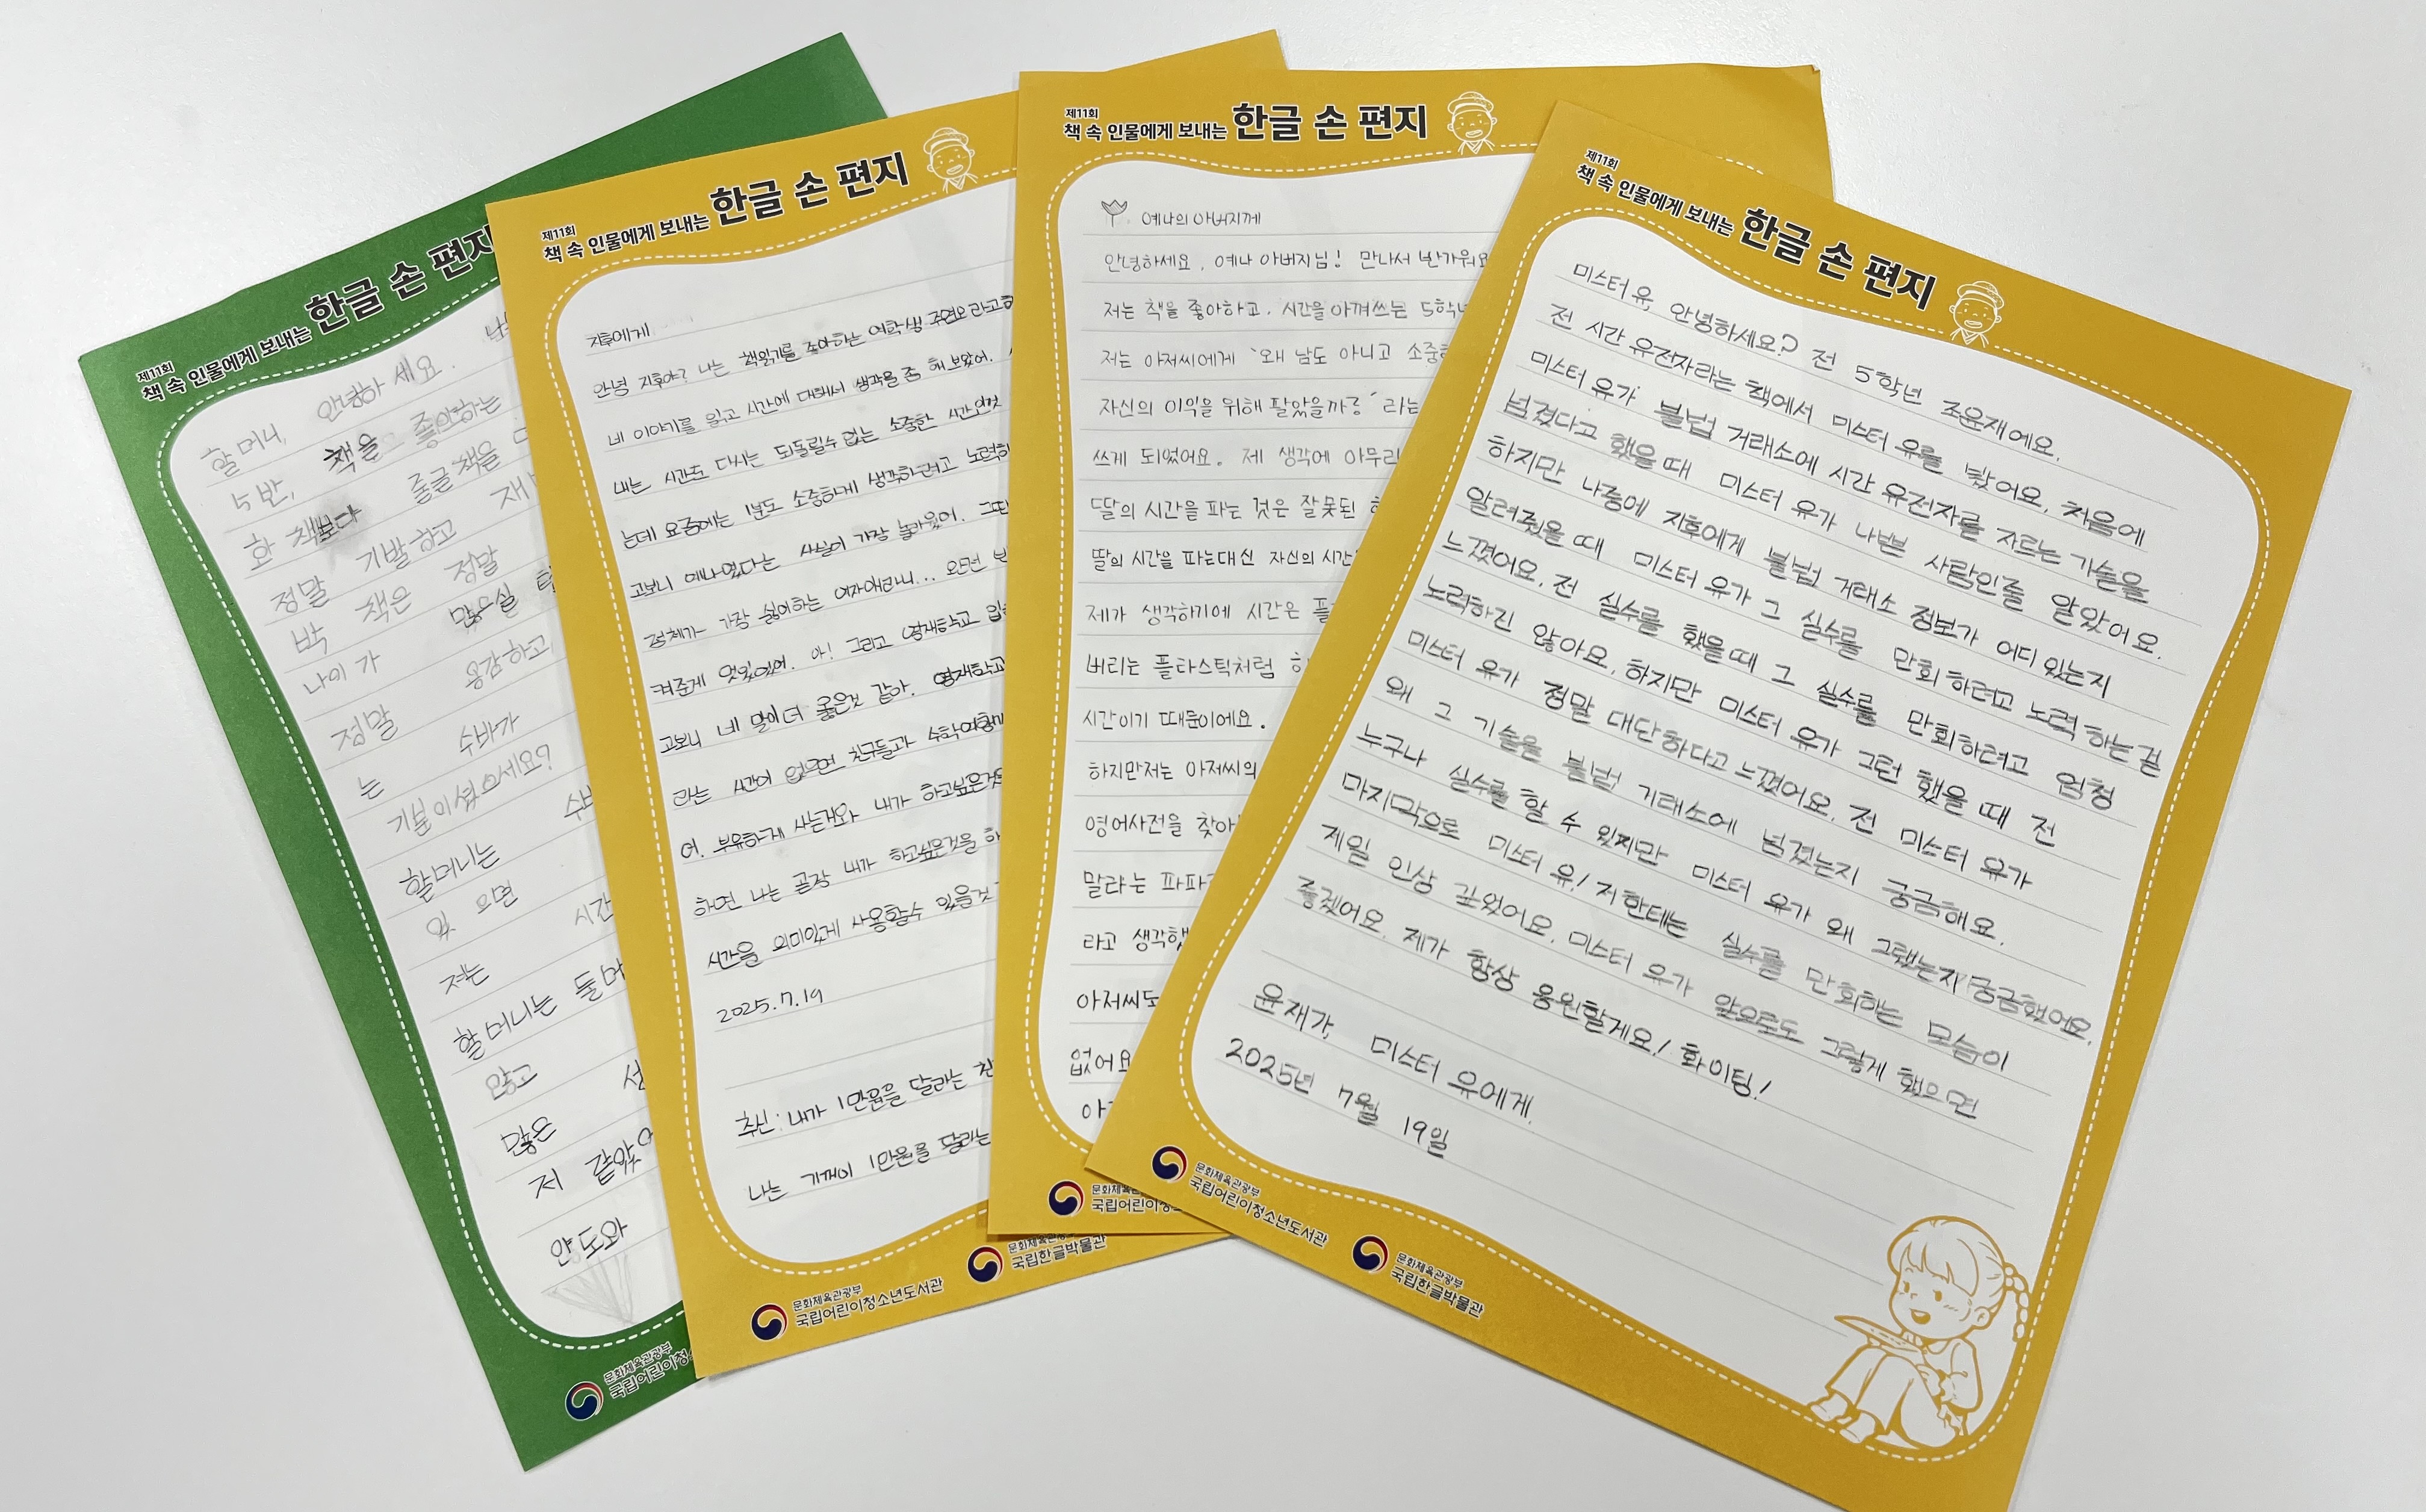 제11회
책 속 인물에게 보내는 한글 손 편지
안녕하세요.
할머니,
5반, 책을 좋아하는
화 책보다 줄글책을
정말 기발하고 재
박 책은 정말
나이가 많으실
정말 용감하고,
는 수바가
기분이셨으세요?
할머니는 수
있으면 시간
저는
할머니는 돌
않고
많은
저 같았
안도와
문화체육관광부
국립어린이청소
제11회
책 속 인물에게 보내는 한글 손 편지
지후에게
안녕 지후야? 나는 책읽기를 좋아하는 여학생 주연요라고
네 이야기를 읽고 시간에 대해서 생각을 좀 해 보았어.
내는 시간은 다시는 되돌릴수 없는 소중한 시간인것
는데 요즘에는 1분도 소중하게 생각하려고 노력하
고보니 예나였다는 사실이 가장 놀라웠어. 그
정체가 가장 싫어하는 여자애라니... 완전 반
켜준게 멋있었어. 아! 그리고 영재학교 입
고보니 네 말이 더 옳은것 같아. 영재학교
라는 시간이 없으면 친구들과 수학여행
어. 부유하게 사는거와 내가 하고싶은것
하면 나는 곧장 내가 하고싶은것을 하
시간을 의미있게 사용할수 있을것
2025.7.19
추신: 내가 1만원을 달라는 친
나는 기꺼이 1만원을 달라는
문화체육관광부
국립어린이청소년도서관
문화체육관광부
국립한글박물관
제11회
책 속 인물에게 보내는 한글 손 편지
예나의 아버지께
안녕하세요, 예나 아버지님! 만나서 반가워요
저는 책을 좋아하고, 시간을 아껴쓰는 5학년
저는 아저씨에게 '왜 남도 아니고 소중한
자신의 이익을 위해 팔았을까?' 라는
쓰게 되었어요. 제 생각에 아무리
딸의 시간을 파는 것은 잘못된 행
딸의 시간을 파는대신 자신의 시간
제가 생각하기에 시간은 플
버리는 플라스틱처럼 한
시간이기 때문이에요.
하지만저는 아저씨의
영어사전을 찾아
말라는 파파
라고 생각했
아저씨도
없어요
아
문화체육관광부
국립어린이청
제11회
책 속 인물에게 보내는 한글 손 편지
미스터 유, 안녕하세요? 전 5학년 조윤재예요.
전 시간 유전자라는 책에서 미스터 유를 봤어요. 처음에
미스터 유가 불법 거래소에 시간 유전자를 자르는 기술을
넘겼다고 했을 때 미스터 유가 나쁜 사람인줄 알았어요.
하지만 나중에 지후에게 불법 거래소 정보가 어디 있는지
알려줬을 때 미스터 유가 그 실수를 만회하려고 노력하는걸
느꼈어요. 전 실수를 했을때 그 실수를 만회하려고 엄청
노력하진 않아요. 하지만 미스터 유가 그런 했을 때 전
미스터 유가 정말 대단하다고 느꼈어요. 전 미스터 유가
왜 그 기술을 불법 거래소에 넘겼는지 궁금해요.
누구나 실수를 할 수 있지만 미스터 유가 왜 그랬는지 궁금했어요.
마지막으로 미스터 유! 저한테는 실수를 만회하는 모습이
제일 인상 깊었어요. 미스터 유가 앞으로도 그렇게 했으면
좋겠어요. 제가 항상 응원할게요! 화이팅!
윤재가, 미스터 유에게.
2025년 7월 19일
문화체육관광부
국립어린이청소년도서관
문화체육관광부
국립한글박물관